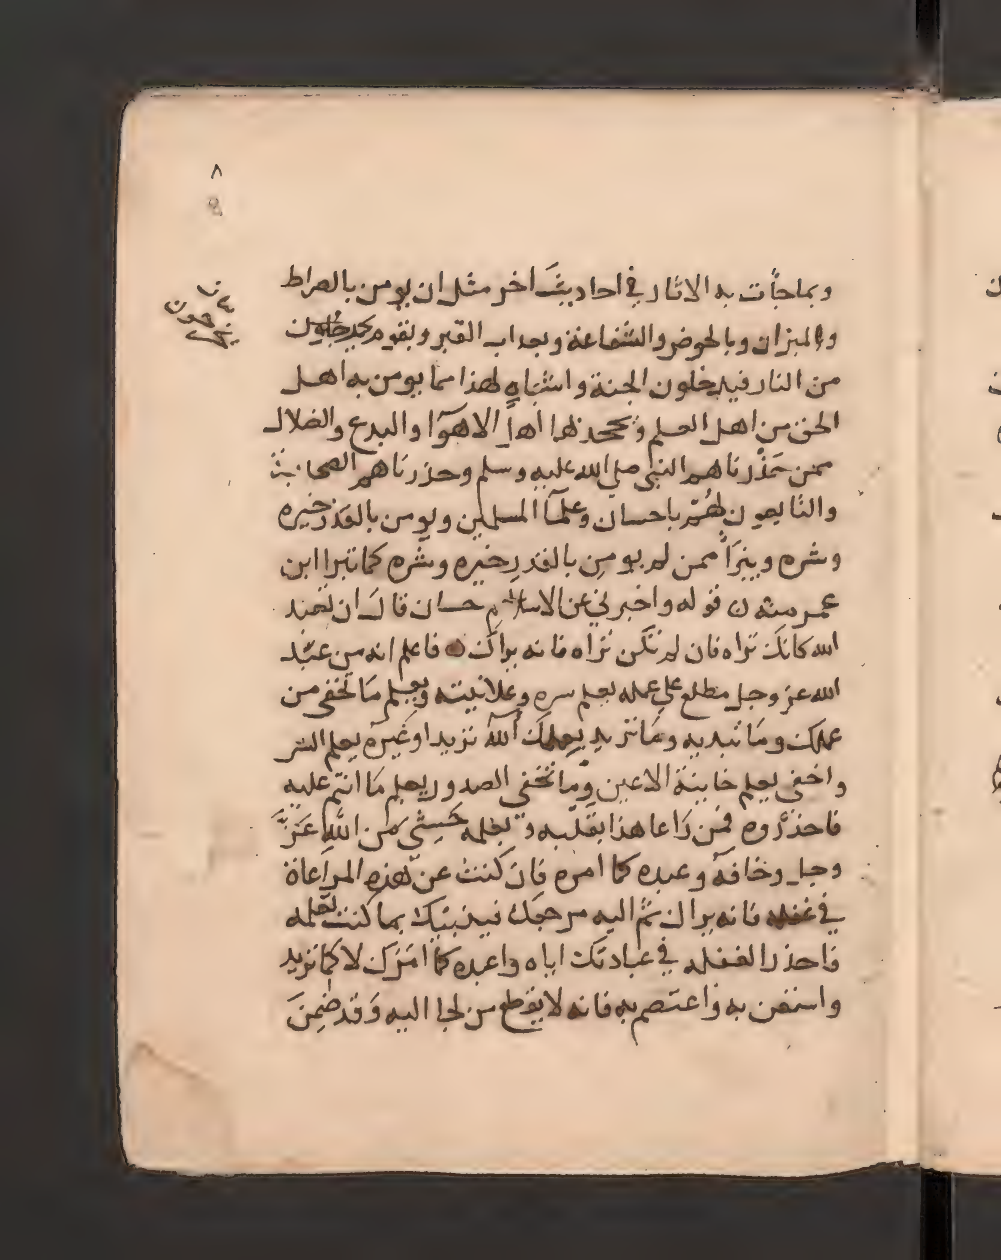 ٨
٩
يخرجون
وبما جأت به الاثار في احاديث اخر مثل ان يومن بالصراط
والميزان وبالحوض والشفاعة وبعذاب القبر وبقوم
من النار فيدخلون الجنة واشباه لهذا مما يومن به اهل
الحق من اهل العلم ويجحد بها اهل الاهوآ والبدع والضلال
ممن حذرناهم النبي صلي الله عليه وسلم وحذرناهم الصحابة
والتابعون لهم باحسان وعلمآ المسلمين ويومن بالقدر خيره
وشره ويبرأ ممن لم يومن بالقدر خيره وشره كما تبرا ابن
عمر منه ن قوله واخبرني عن الاحسان قال ان تعبد
الله كانك تراه فان لم تكن تراه فانه يراك فاعلم انه من عبد
الله عز وجل مطلع علي عمله يعلم سره وعلانيته ويعلم ما تخفي من
عملك وما تبديه وما تريد بعملك آلله تريد او غيره يعلم السر
واخفي يعلم خاينة الاعين وما تخفي الصدور يعلم ما انتم عليه
فاحذروه فمن راعا هذا بقلبه وبعلمه خشي من الله عز
وجل وخافه وعبده كما امره فان كنت عن هذه المراعاة
في غفله فانه يراك ثم اليه مرجعك فينبيك بما كنت تعمله
فاحذر الغفله في عبادتك اياه واعبده كما امرك لا كما تريد
واستعن به واعتصم به فانه لا يقطع من لجا اليه وقد ضمن